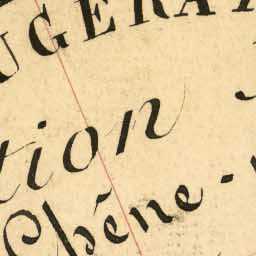 UGERA
tion
Chêne-